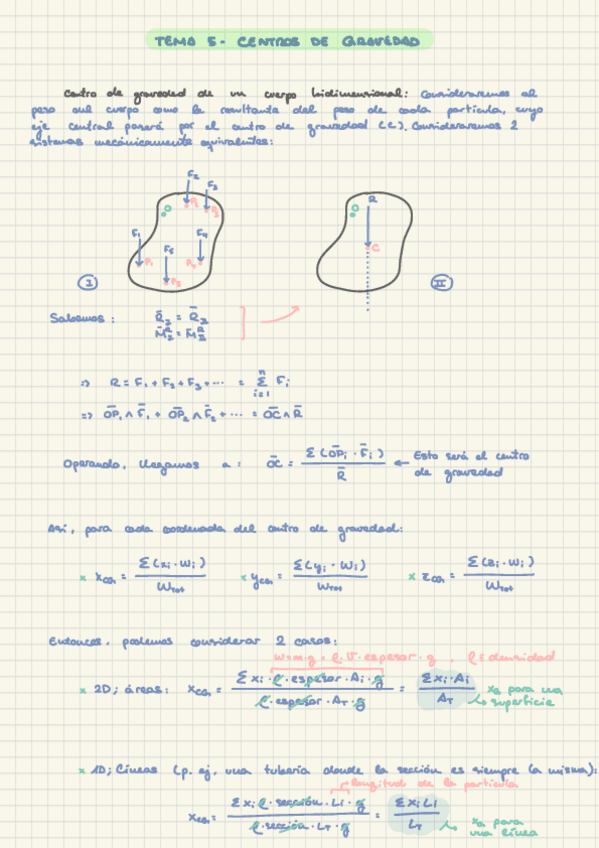 TEMA 5- CENTROS DE GRAVEDAD
Centro de gravedad de un cuerpo bidimensional: Consideraremos al
peso del cuerpo como la resultante del peso de cada partícula, cuyo
eje central pasará por el centro de gravedad (C). Consideraremos 2
sistemas mecánicamente equivalentes:
F₂ F₃ O P₂ P₃
F₁ F₅ F₄ P₁ P₄ P₅
R O C
I II
Sabemos: R̄_I = R̄_II
M̄_I^R = M̄_II^R
=> R = F₁ + F₂ + F₃ + ... = Σ_{i=1}^{n} F_i
=> OP̄₁ ∧ F̄₁ + OP̄₂ ∧ F̄₂ + ... = OC̄ ∧ R̄
Operando, llegamos a: OC̄ = Σ(OP̄i · F̄i) / R̄ ← Esto será el centro
de gravedad
Así, para cada coordenada del centro de gravedad:
× x_CG = Σ(xi · Wi) / W_TOT × y_CG = Σ(yi · Wi) / W_TOT × z_CG = Σ(zi · Wi) / W_TOT
Entonces, podemos considerar 2 casos:
w = m·g = ρ · V · espesor · g , ρ ≡ densidad
× 2D; áreas: x_CG = Σ xi · ρ · espesor · Ai · g / ρ · espesor · A_T · g = Σ xi · Ai / A_T ↳ x_G para una
superficie
× 1D; Líneas (p. ej, una tubería donde la sección es siempre la misma):
longitud de la partícula
x_CG = Σ xi ρ · sección · Li · g / ρ · sección · L_T · g = Σ xi Li / L_T ↳ x_G para
una línea